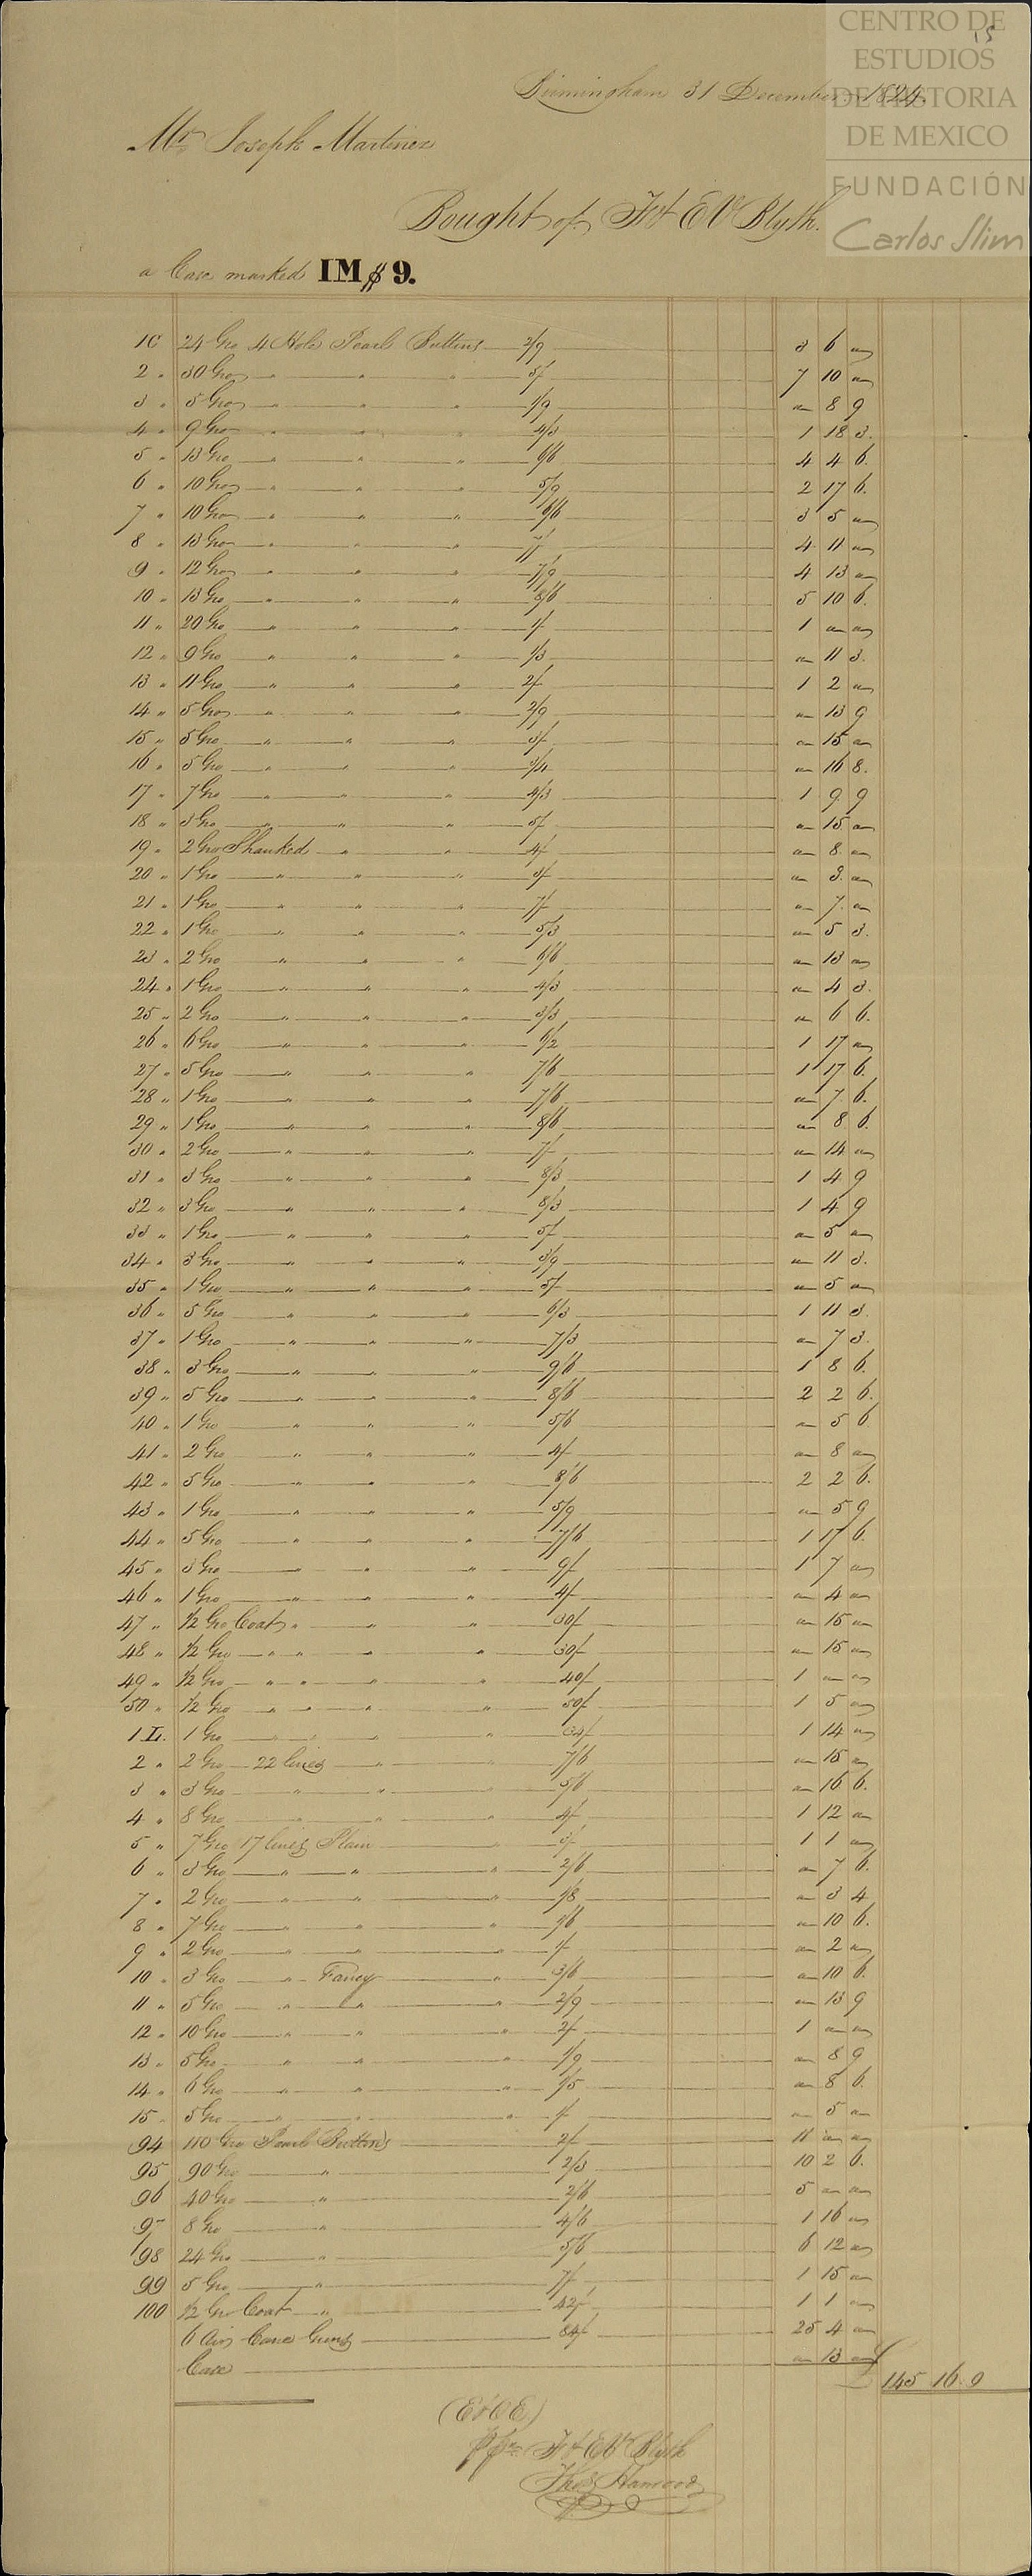 CENTRO DE
ESTUDIOS
DE HISTORIA
DE MEXICO
FUNDACIÓN
Carlos Slim
15
Birmingham 31 December 1824.
Mr Joseph Martinez
Bought of F & E V Blyth.
a Case marked IM $ 9.
1C 24 Gro 4 Hole Pearl Buttons 2/9 3 6 "
2 " 30 Gro " " " 5/ 7 10 "
3 " 5 Gro " " " 1/9 " 8 9
4 " 9 Gro " " " 4/3 1 18 3.
5 " 13 Gro " " " 6/6 4 4 6.
6 " 10 Gro " " " 5/9 2 17 6.
7 " 10 Gro " " " 6/6 3 5 "
8 " 13 Gro " " " 7/ 4 11 "
9 " 12 Gro " " " 7/9 4 13 "
10 " 13 Gro " " " 8/6 5 10 6.
11 " 20 Gro " " " 1/ 1 " "
12 " 9 Gro " " " 1/3 " 11 3.
13 " 11 Gro " " " 2/ 1 2 "
14 " 5 Gro " " " 2/9 " 13 9
15 " 5 Gro " " " 3/ " 15 "
16 " 5 Gro " " " 3/4 " 16 8.
17 " 7 Gro " " " 4/3 1 9 9
18 " 3 Gro " " " 5/ " 15 "
19 " 2 Gro Shanked " " 4/ " 8 "
20 " 1 Gro " " " 3/ " 3 "
21 " 1 Gro " " " 7/ " 7 "
22 " 1 Gro " " " 5/3 " 5 3.
23 " 2 Gro " " " 6/6 " 13 "
24 " 1 Gro " " " 4/3 " 4 3.
25 " 2 Gro " " " 3/3 " 6 6.
26 " 6 Gro " " " 6/2 1 17 "
27 " 5 Gro " " " 7/6 1 17 6.
28 " 1 Gro " " " 7/6 " 7 6.
29 " 1 Gro " " " 8/6 " 8 6.
30 " 2 Gro " " " 7/ " 14 "
31 " 3 Gro " " " 8/3 1 4 9
32 " 3 Gro " " " 8/3 1 4 9
33 " 1 Gro " " " 5/ " 5 "
34 " 3 Gro " " " 3/9 " 11 3.
35 " 1 Gro " " " 5/ " 5 "
36 " 5 Gro " " " 6/3 1 11 3
37 " 1 Gro " " " 7/3 " 7 3.
38 " 3 Gro " " " 9/6 1 8 6.
39 " 5 Gro " " " 8/6 2 2 6.
40 " 1 Gro " " " 5/6 " 5 6
41 " 2 Gro " " " 4/ " 8 "
42 " 5 Gro " " " 8/6 2 2 6.
43 " 1 Gro " " " 5/9 " 5 9
44 " 5 Gro " " " 7/6 1 17 6.
45 " 3 Gro " " " 9/ 1 7 "
46 " 1 Gro " " " 4/ " 4 "
47 " 1/2 Gro Coat " " " 30/ " 15 "
48 " 1/2 Gro " " " " 30/ " 15 "
49 " 1/2 Gro " " " " 40/ 1 " "
50 " 1/2 Gro " " " " 50/ 1 5 "
1 L. 1 Gro " " " " 34/ 1 14 "
2 " 2 Gro 22 lines " " 7/6 " 15 "
3 " 3 Gro " " " 5/6 " 16 6.
4 " 8 Gro " " " 4/ 1 12 "
5 " 7 Gro 17 lines Plain " 3/ 1 1 "
6 " 3 Gro " " " 2/6 " 7 6.
7 " 2 Gro " " " 1/8 " 3 4
8 " 7 Gro " " " 1/6 " 10 6.
9 " 2 Gro " " " 1/ " 2 "
10 " 3 Gro " Fancy " 3/6 " 10 6.
11 " 5 Gro " " " 2/9 " 13 9
12 " 10 Gro " " " 2/ 1 " "
13 " 5 Gro " " " 1/9 " 8 9
14 " 6 Gro " " " 1/5 " 8 6.
15 " 5 Gro " " " 1/ " 5 "
94 110 Gro Pearl Buttons 2/ 11 " "
95 90 Gro " 2/3 10 2 6.
96 40 Gro " 2/6 5 " "
97 8 Gro " 4/6 1 16 "
98 24 Gro " 5/6 6 12 "
99 5 Gro " 7/ 1 15 "
100 1/2 Gro Coat " 42/ 1 1 "
6 Air Cane Guns 84/ 25 4 "
Case " 13 "
£ 145 16 9
(E & O E.)
pp F & E V Blyth
Thos Hanwood